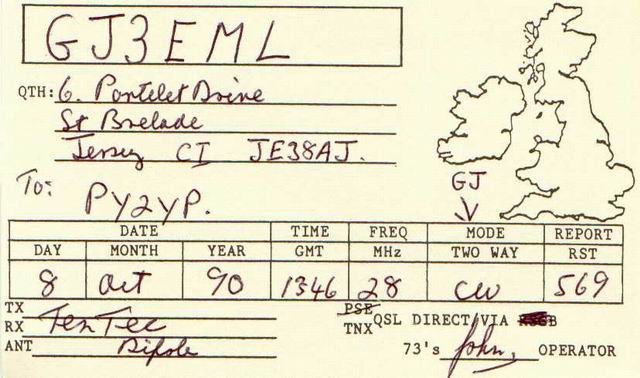 GJ3EML
QTH: 6. Portelet Drive
St Brelade
Jersey CI JE38AJ.
GJ
To: PY2YP.
DATE TIME FREQ MODE REPORT
DAY MONTH YEAR GMT MHz TWO WAY RST
8 Oct 90 1346 28 CW 569
TX
RX TenTec
ANT Dipole
PSE
TNX QSL DIRECT/VIA
73's John, OPERATOR